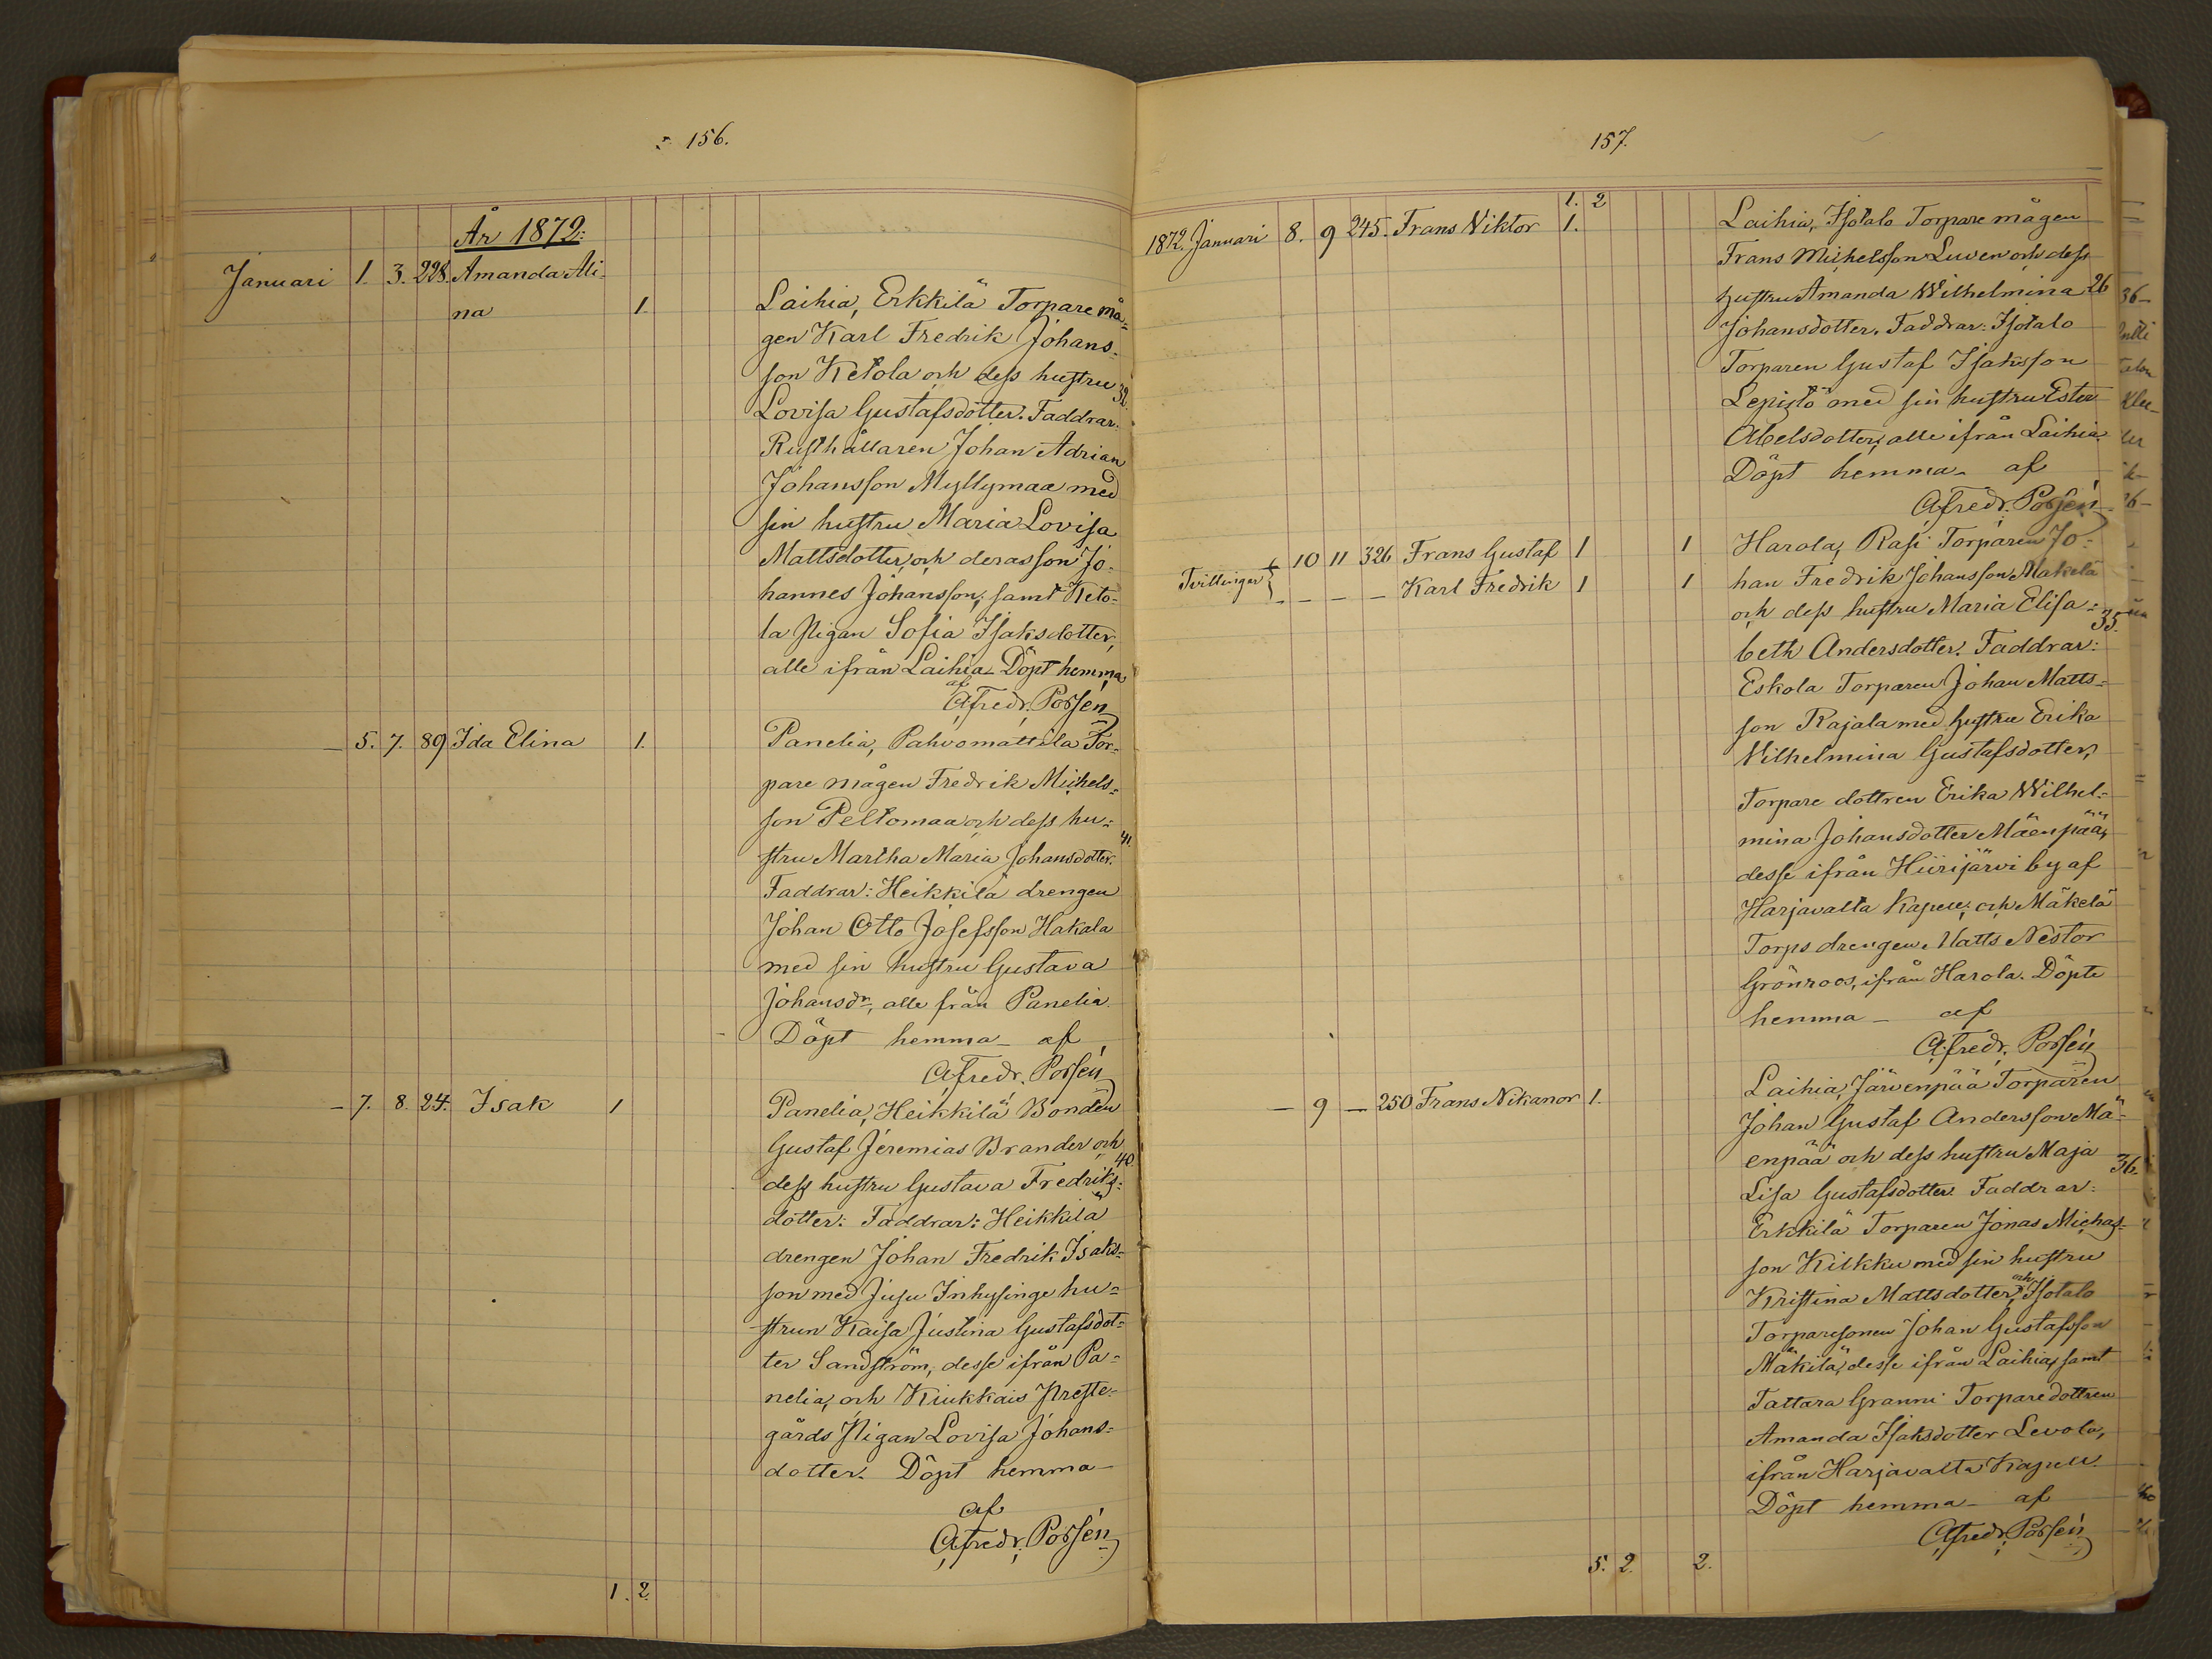 156.
År 1872:
Januari 1. 3. 228. Amanda Ali-
na 1. Laihia, Erkkilä Torpare må-
gen Karl Fredrik Johans-
son Ketola och dess hustru 32.
Lovisa Gustafsdotter. Faddrar:
Rusthållaren Johan Adrian
Johansson Myllymaa med
sin hustru Maria Lovisa
Mattsdotter, och deras son Jo-
hannes Johansson, samt Keto-
la Pigan Sofia Isaksdotter,
alle ifrån Laihia. Döpt hemma
af
A. Fredr. Porsén
— 5. 7. 89 Ida Elina 1. Panelia, Pahvomattila Tor-
pare mågen Fredrik Michels-
son Peltomaa och dess hu- 41.
stru Martha Maria Johansdotter.
Faddrar: Heikkilä drengen
Johan Otto Josefsson Hakala
med sin hustru Gustava
Johansdr, alle från Panelia.
Döpt hemma — af
A. Fredr. Porsén
— 7. 8. 24. Isak 1 Panelia, Heikkilä Bonden
Gustaf Jeremias Brander och
dess hustru Gustava Fredriks- 40.
dotter: Faddrar: Heikkilä
drengen Johan Fredrik Isaks-
son med Juju Inhysinge hu-
strun Kaisa Justina Gustafsdot-
ter Sandström, desse ifrån Pa-
nelia, och Kiukkais Preste-
gårds Pigan Lovisa Johans-
dotter. Döpt hemma —
af
A. Fredr. Porsén
1. 2.
157.
1. 2
1872. Januari 8. 9 245. Frans Viktor 1. Laihia, Isotalo Torpare mågen
Frans Michelsson Luven och dess
hustru Amanda Wilhelmina 26
Johansdotter. Faddrar: Isotalo
Torparen Gustaf Isaksson
Lepistö med sin hustru Ester
Abelsdotter, alle ifrån Laihia.
Döpt hemma — af
A. Fredr. Porsén
Tvillingar { 10 11 326 Frans Gustaf 1 1 Harola, Rasi Torparen Jo-
— — — — Karl Fredrik 1 1 han Fredrik Johansson Makelä
och dess hustru Maria Elisa- 35.
beth Andersdotter. Faddrar:
Eskola Torparen Johan Matts-
son Rajala med hustru Erika
Vilhelmina Gustafsdotter,
Torpare dottren Erika Wilhel-
mina Johansdotter Mäenpää,
desse ifrån Hiirijärvi by af
Harjavalta Kapell, och Mäkelä
Torps drengen Matts Nestor
Grönroos, ifrån Harola. Döpte
hemma — af
A. Fredr. Porsén
— 9 — 250 Frans Nikanor 1. Laihia, Järvenpää Torparen
Johan Gustaf Andersson Mä-
enpää och dess hustru Maja 36.
Lisa Gustafsdotter. Faddrar:
Erkkilä Torparen Jonas Michas-
son Kilkku med sin hustru
Kristina Mattsdotter, och Isotalo
Torparesonen Johan Gustafsson
Mäkilä, desse ifrån Laihia, samt
Tattara Granni Torparedottren
Amanda Isaksdotter Levola,
ifrån Harjavalta Kapell.
Döpt hemma — af
A. Fredr. Porsén
5. 2. 2.